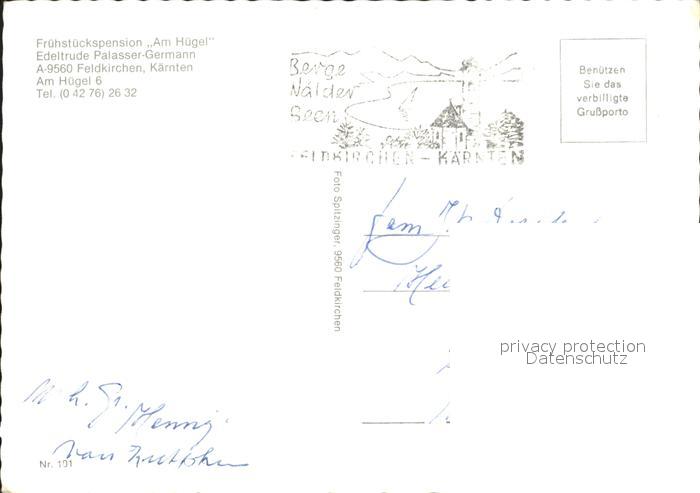 Frühstückspension „Am Hügel"
Edeltrude Palasser-Germann
A-9560 Feldkirchen, Kärnten
Am Hügel 6
Tel. (0 42 76) 26 32
Berge
Wälder
Seen
FELDKIRCHEN - KÄRNTEN
Benützen
Sie das
verbilligte
Grußporto
Foto Spitzinger, 9560 Feldkirchen
Fam
privacy protection
Datenschutz
Henning
Nr. 101